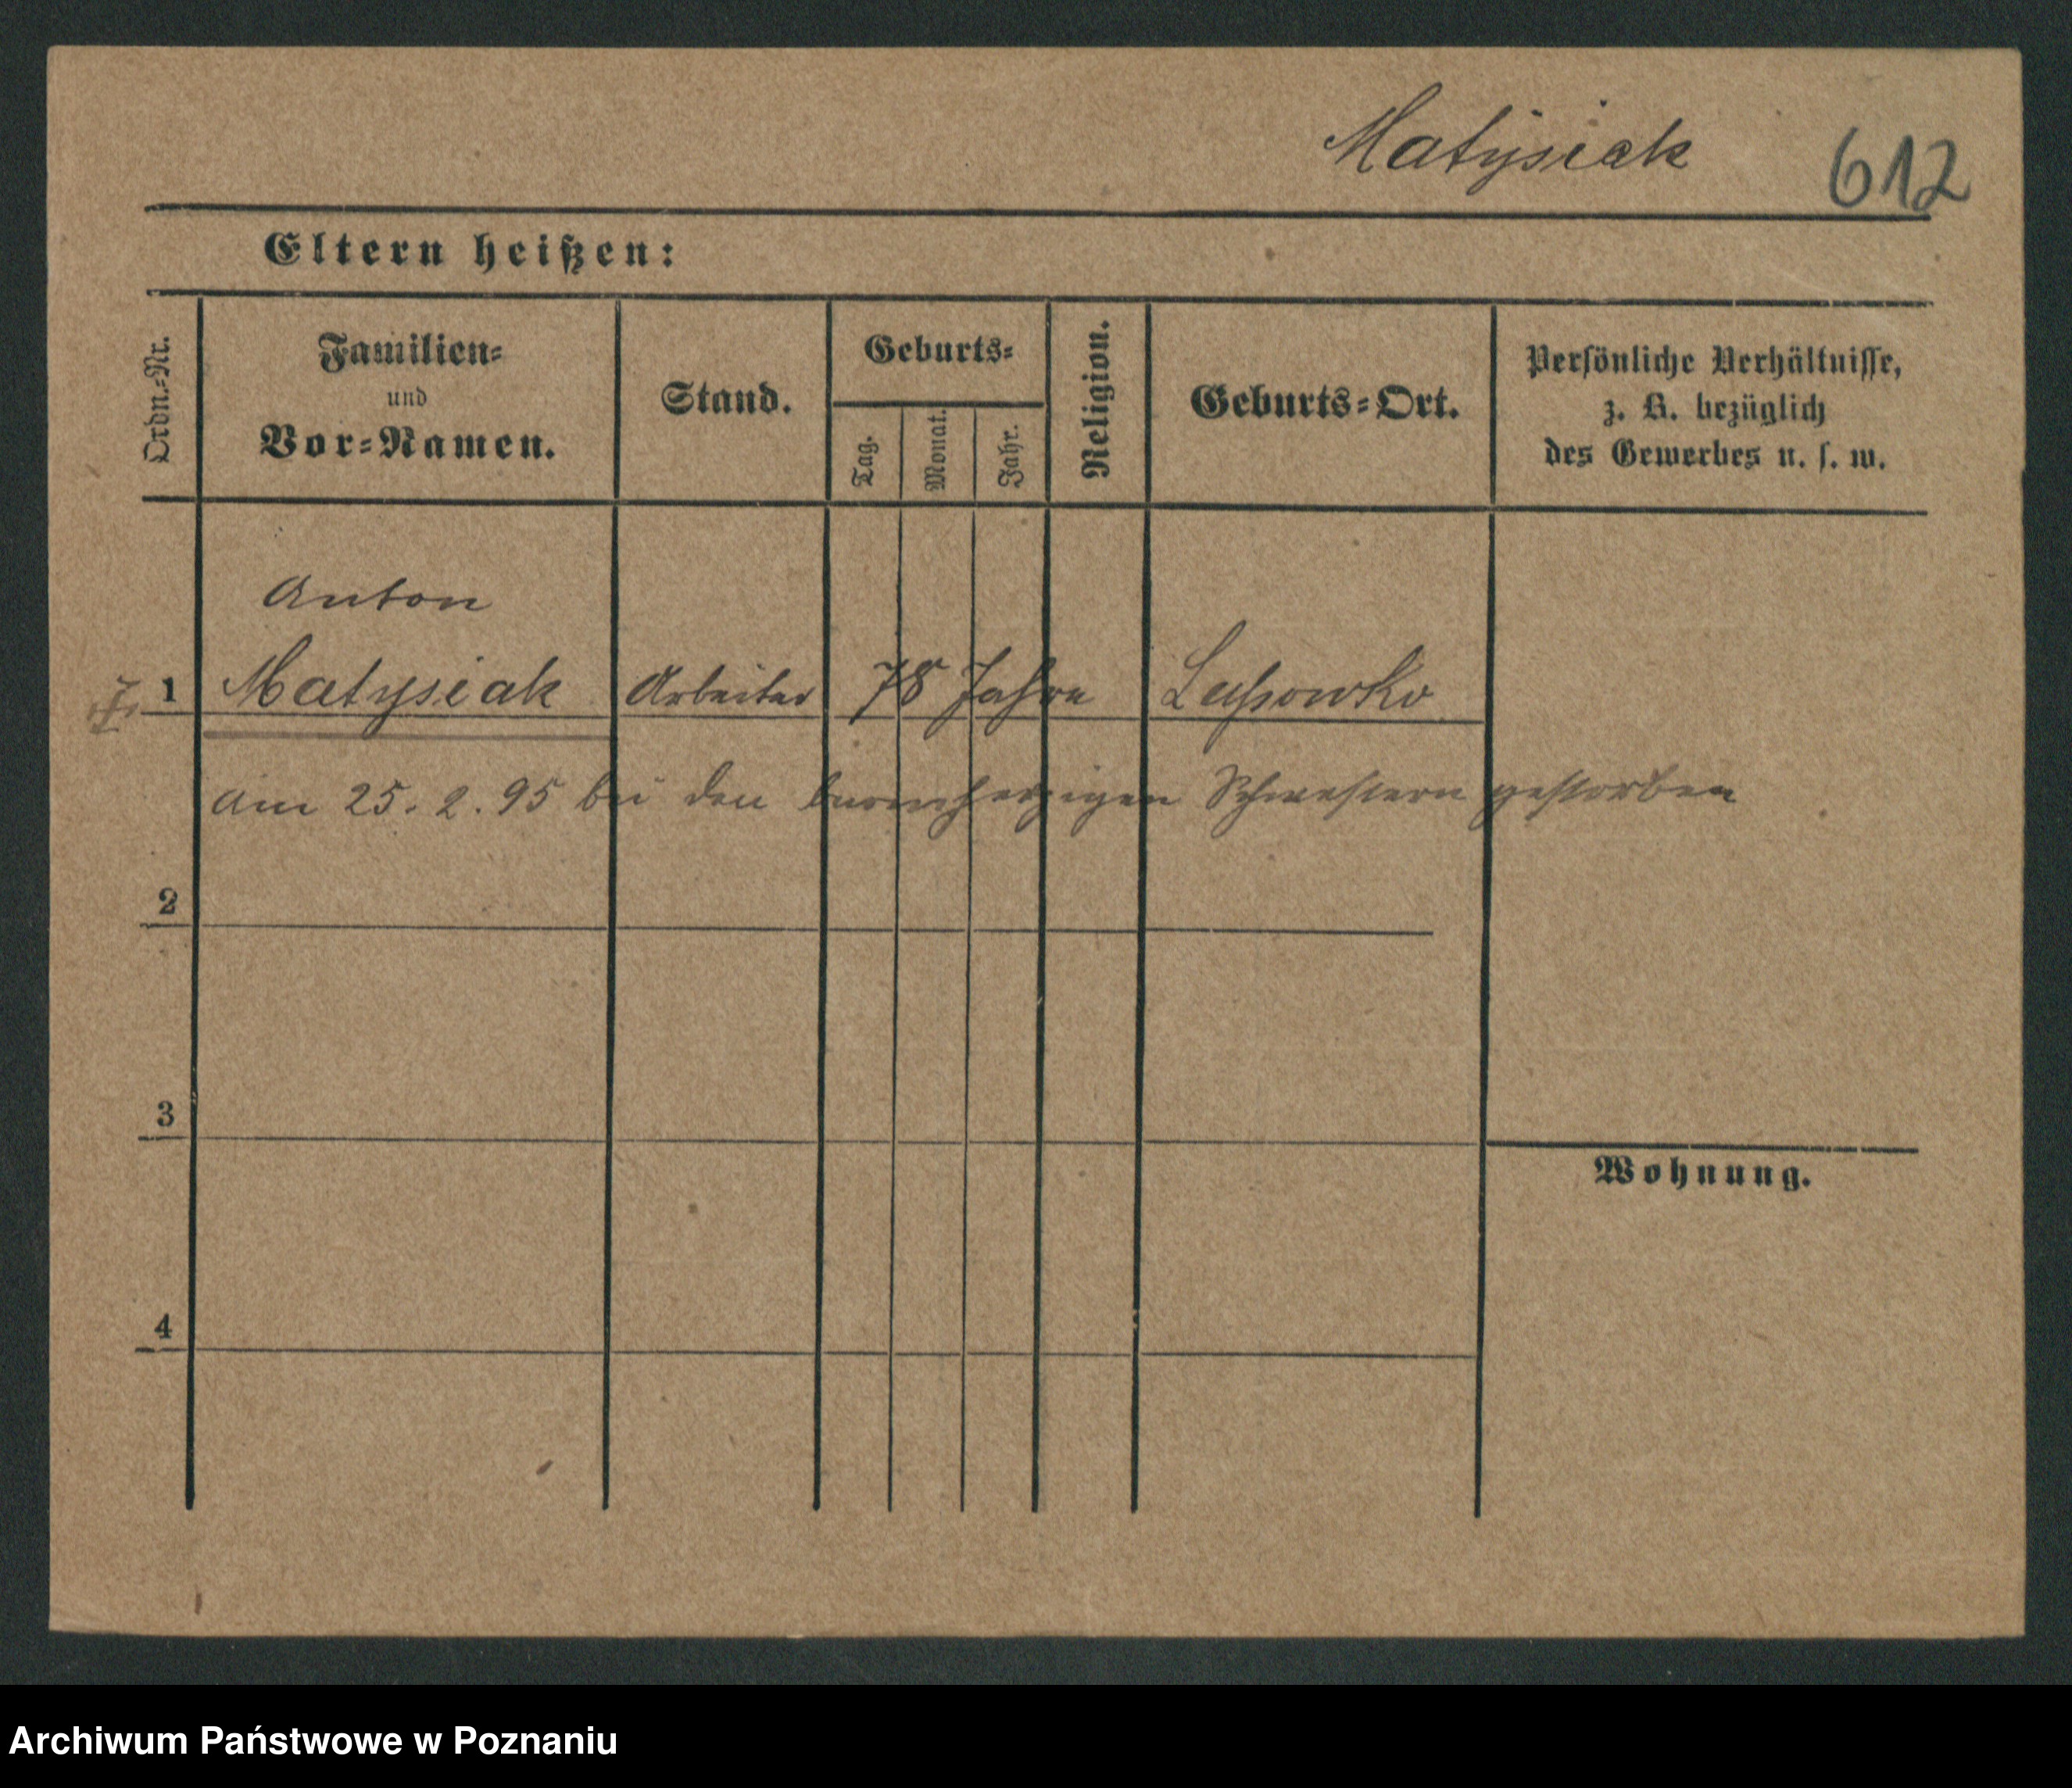 Matysiak 612
Eltern heißen:
Ordn.=Nr.
Familien=
und
Vor=Namen.
Stand.
Geburts=
Tag.
Monat.
Jahr.
Religion.
Geburts=Ort.
Persönliche Verhältnisse,
z. B. bezüglich
des Gewerbes u. s. w.
Anton
1 Matysiak Arbeiter 78 Jahre Lussowko
am 25. 2. 95 bei den barmherzigen Schwestern gestorben
2
3
Wohnung.
4
Archiwum Państwowe w Poznaniu